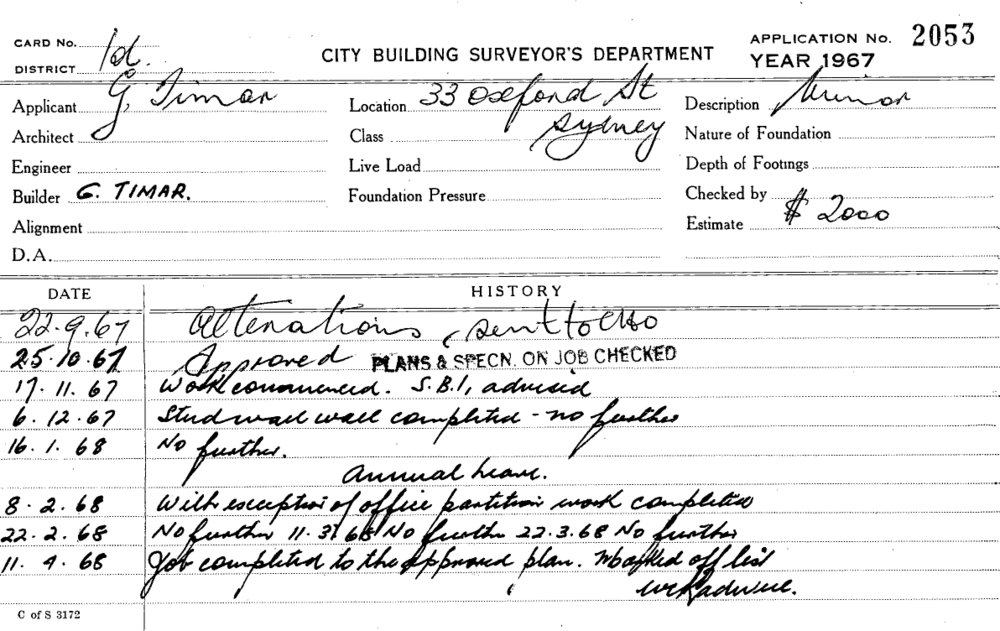 CARD No. 1d.
CITY BUILDING SURVEYOR'S DEPARTMENT
APPLICATION No. 2053
DISTRICT
YEAR 1967
Applicant G. Timar
Location 33 Oxford St
Description Minor
Architect
Class Sydney
Nature of Foundation
Engineer
Live Load
Depth of Footings
Builder G. TIMAR.
Foundation Pressure
Checked by
Alignment
Estimate $ 2000
D.A.
DATE HISTORY
22.9.67 Alterations, sent to
25.10.67 Approved PLANS & SPECN. ON JOB CHECKED
17.11.67 Work commenced. S.B.I, advised
6.12.67 Stud wall completed - no further
16.1.68 No further.
Annual leave.
8.2.68 With exception of office partition work completed
22.2.68 No further 11.3.68 No further 22.3.68 No further
11.4.68 Job completed to the approved plan. Marked off list
C of S 3172